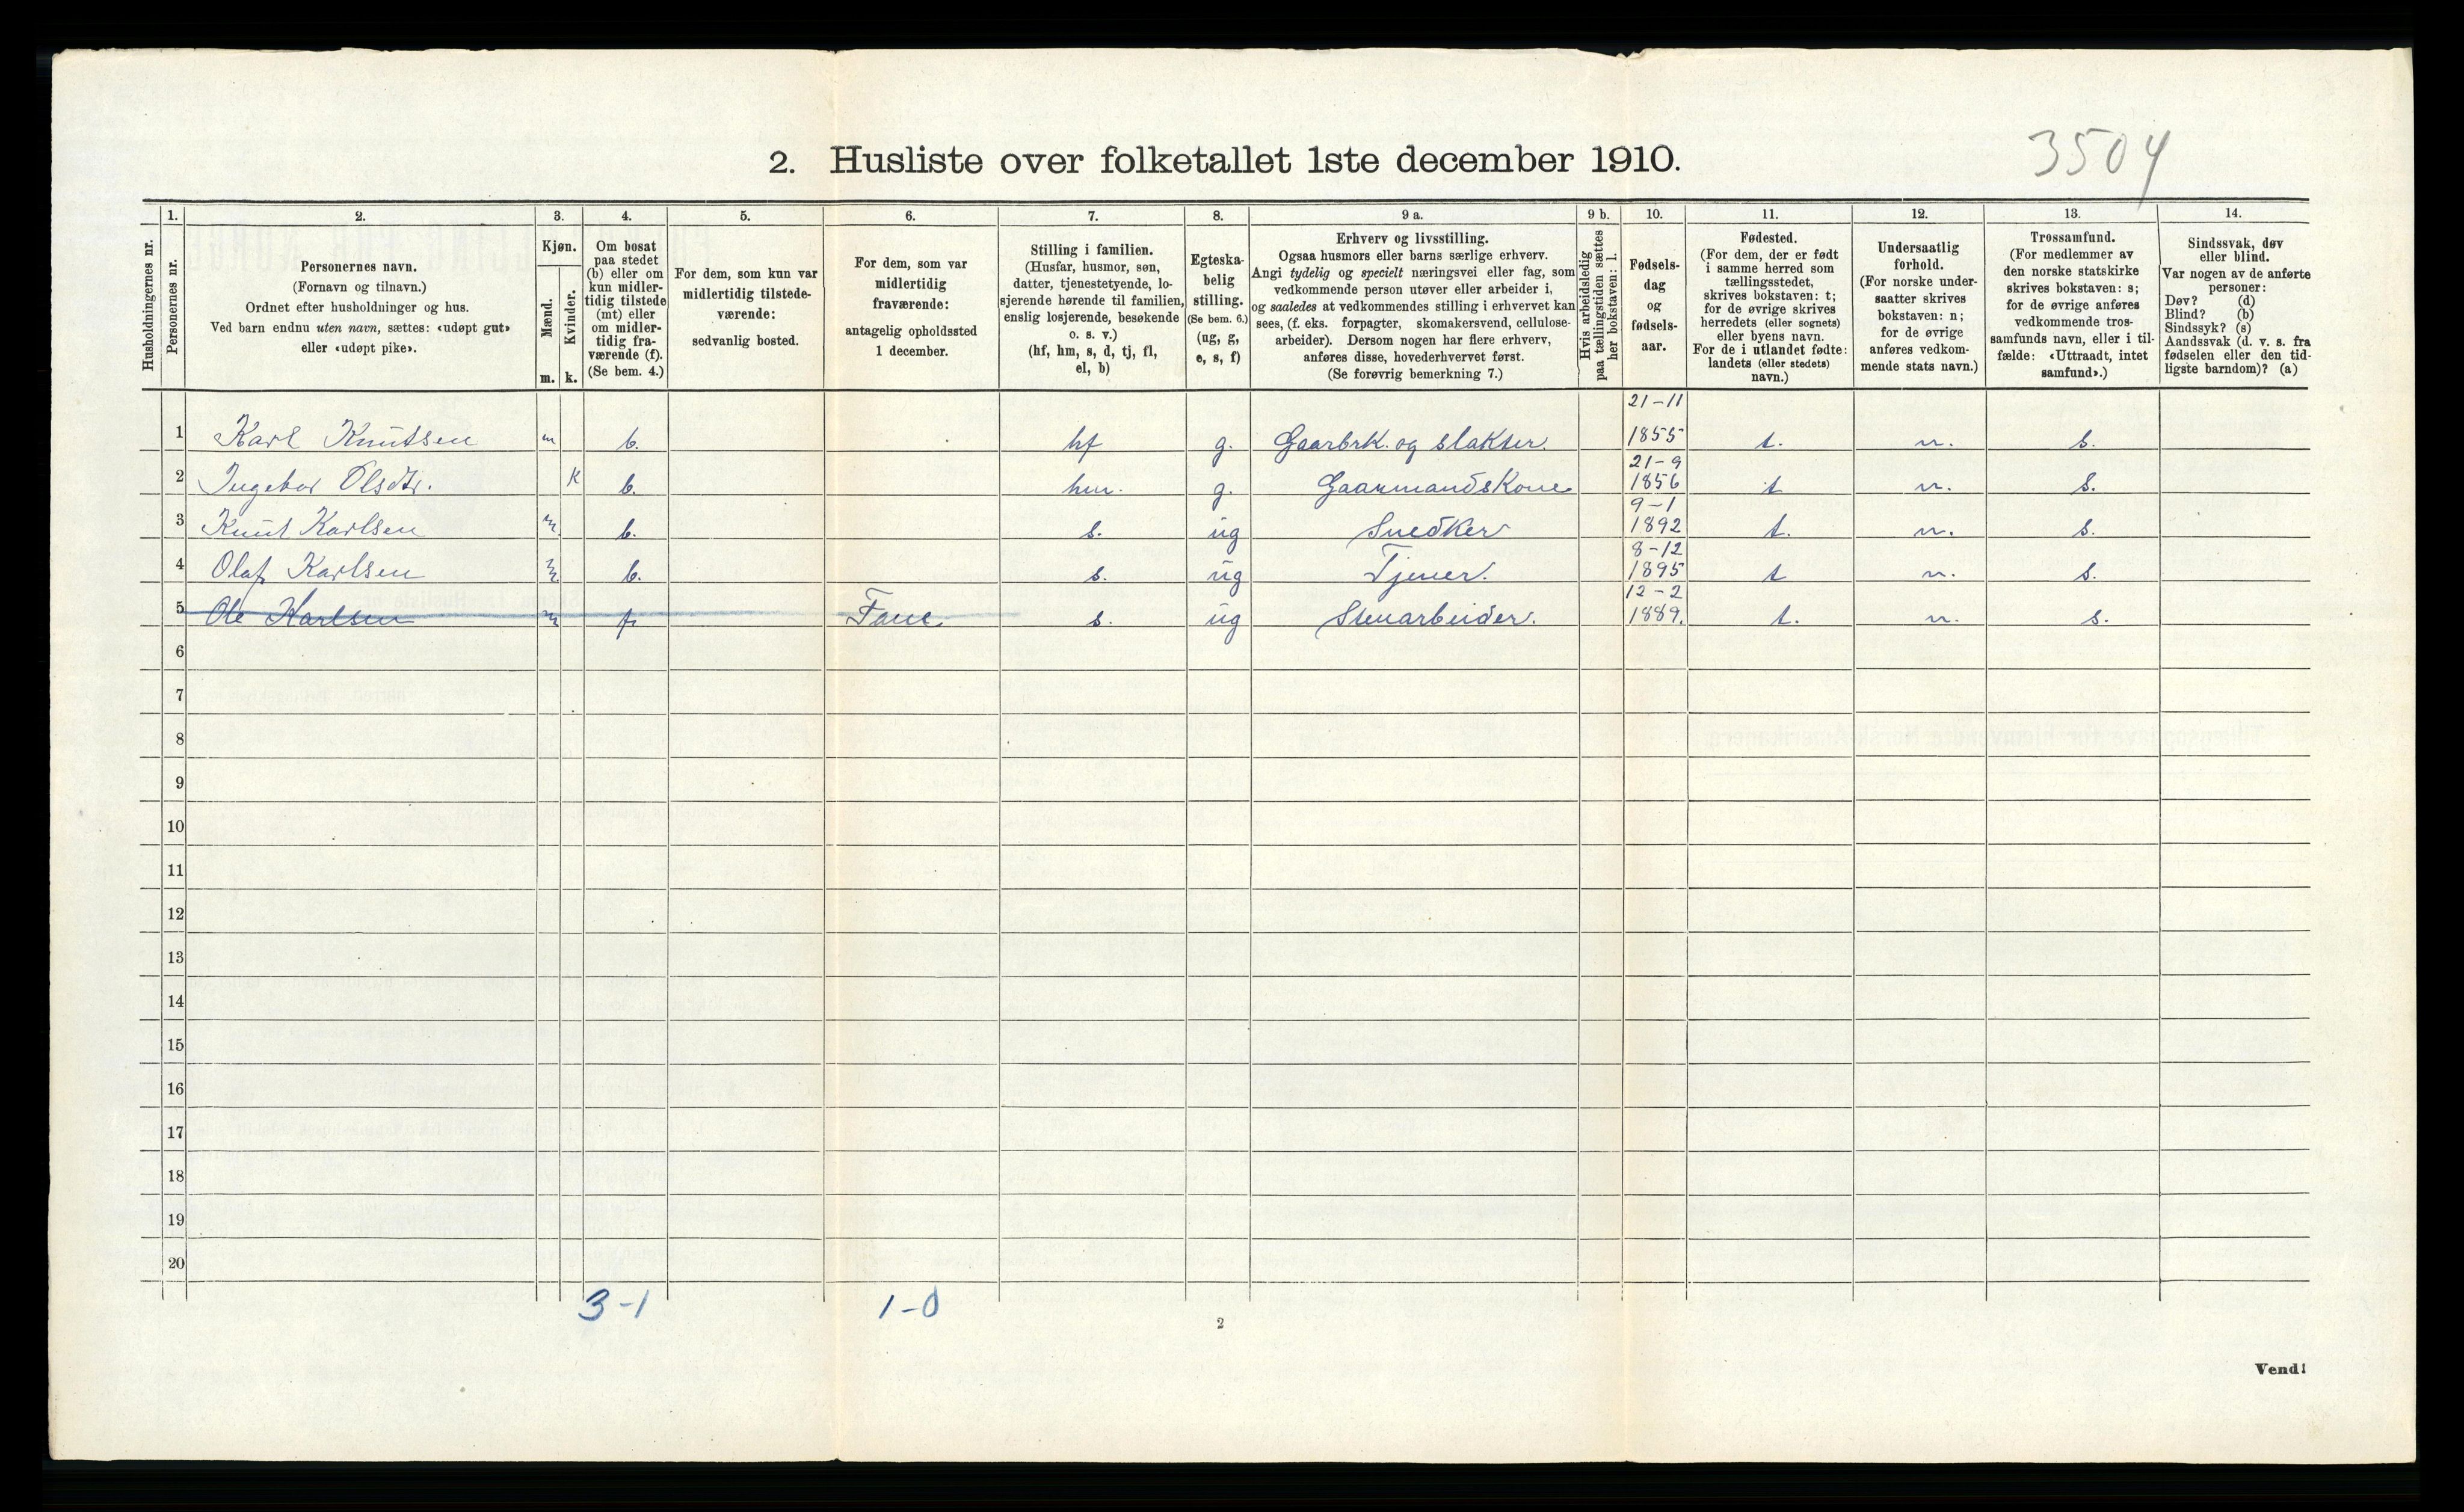 3504
2. Husliste over folketallet 1ste december 1910.
Husholdningernes nr.
1.
Personernes nr.
2.
Personernes navn.
(Fornavn og tilnavn.)
Ordnet efter husholdninger og hus.
Ved barn endnu uten navn, sættes: «udøpt gut»
eller «udøpt pike».
3.
Kjøn.
Mænd.
Kvinder.
m. k.
4.
Om bosat
paa stedet
(b) eller om
kun midler-
tidig tilstede
(mt) eller
om midler-
tidig fra-
værende (f).
(Se bem. 4.)
5.
For dem, som kun var
midlertidig tilstede-
værende:
sedvanlig bosted.
6.
For dem, som var
midlertidig
fraværende:
antagelig opholdssted
1 december.
7.
Stilling i familien.
(Husfar, husmor, søn,
datter, tjenestetyende, lo-
sjerende hørende til familien,
enslig losjerende, besøkende
o. s. v.)
(hf, hm, s, d, tj, fl,
el, b)
8.
Egteska-
belig
stilling.
(Se bem. 6.)
(ug, g,
e, s, f)
9 a.
Erhverv og livsstilling.
Ogsaa husmors eller barns særlige erhverv.
Angi tydelig og specielt næringsvei eller fag, som
vedkommende person utøver eller arbeider i,
og saaledes at vedkommendes stilling i erhvervet kan
sees, (f. eks. forpagter, skomakersvend, cellulose-
arbeider). Dersom nogen har flere erhverv,
anføres disse, hovederhvervet først.
(Se forøvrig bemerkning 7.)
9 b.
Hvis arbeidsledig
paa tællingstiden sættes
her bokstaven: l.
10.
Fødsels-
dag
og
fødsels-
aar.
11.
Fødested.
(For dem, der er født
i samme herred som
tællingsstedet,
skrives bokstaven: t;
for de øvrige skrives
herredets (eller sognets)
eller byens navn.
For de i utlandet fødte:
landets (eller stedets)
navn.)
12.
Undersaatlig
forhold.
(For norske under-
saatter skrives
bokstaven: n;
for de øvrige
anføres vedkom-
mende stats navn.)
13.
Trossamfund.
(For medlemmer av
den norske statskirke
skrives bokstaven: s;
for de øvrige anføres
vedkommende tros-
samfunds navn, eller i til-
fælde: «Uttraadt, intet
samfund».)
14.
Sindssvak, døv
eller blind.
Var nogen av de anførte
personer:
Døv? (d)
Blind? (b)
Sindssyk? (s)
Aandssvak (d. v. s. fra
fødselen eller den tid-
ligste barndom)? (a)
1 Karl Knutsen m b. hf g. Gaarbrk. og slakter. 21-11 1855 t. n. s.
2 Ingebor Olsdtr. k b. hm. g. Gaarmandskone 21-9 1856 t n. s.
3 Knut Karlsen m b. s. ug Snedker 9-1 1892 t. n. s.
4 Olaf Karlsen m b. s. ug Tjener. 8-12 1895 t n. s.
5 Ole Karlsen m f. Fane s. ug Stenarbeider. 12-2 1889. t. n. s.
6
7
8
9
10
11
12
13
14
15
16
17
18
19
20
3-1 1-0
2
Vend!